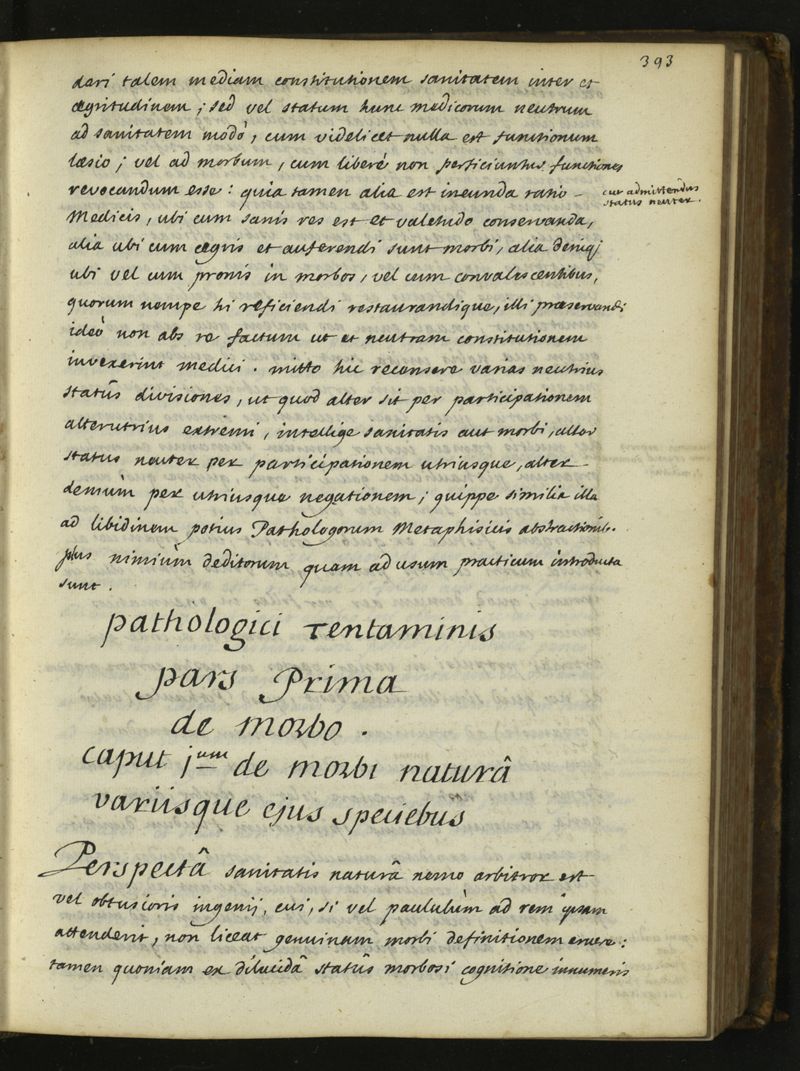 393
dari talem mediam constitutionem sanitatem inter et
ægritudinem ; sed vel statum hunc medicorum neutrum
ad sanitatem modò, cum videlicet nulla est functionum
læsio ; vel ad morbum, cum liberè non perficiuntur functiones
revocandum esse : quia tamen alia est ineunda ratio -
cur admittendus
status neuter.
Medicis, ubi cum sanis res est et valetudo conservanda,
alia ubi cum ægris et auferendi sunt morbi, alia deniq;
ubi vel cum pronis in morbos, vel cum convalescentibus,
quorum nempe hi reficiendi restaurandique, illi præservandi
ideò non abs re factum ut et neutram constitutionem
invexerint medici . mitto hic recensere varias neutrius
statûs divisiones, ut quod alter sit per participationem
alterutrius extremi, intellige sanitatis aut morbi, alter
status neuter per participationem utriusque, alter -
demùm per utriusque negationem ; quippe similia illa
ad libidinem potius Pathologorum Metaphisicis abstractionib.
nimiùm deditorum quam ad usum practicum introducta
sunt .
pathologici Tentaminis
pars Prima
de morbo .
caput j^um de morbi naturâ
variisque ejus speciebus
Perspectâ sanitatis naturâ nemo arbitror est
vel obtusioris ingenij, cui, si vel paululùm ad rem ipsam
attenderit, non liceat genuinam morbi definitionem eruere :
tamen quoniam ex dilucidâ statûs morbosi cognitione innumeris